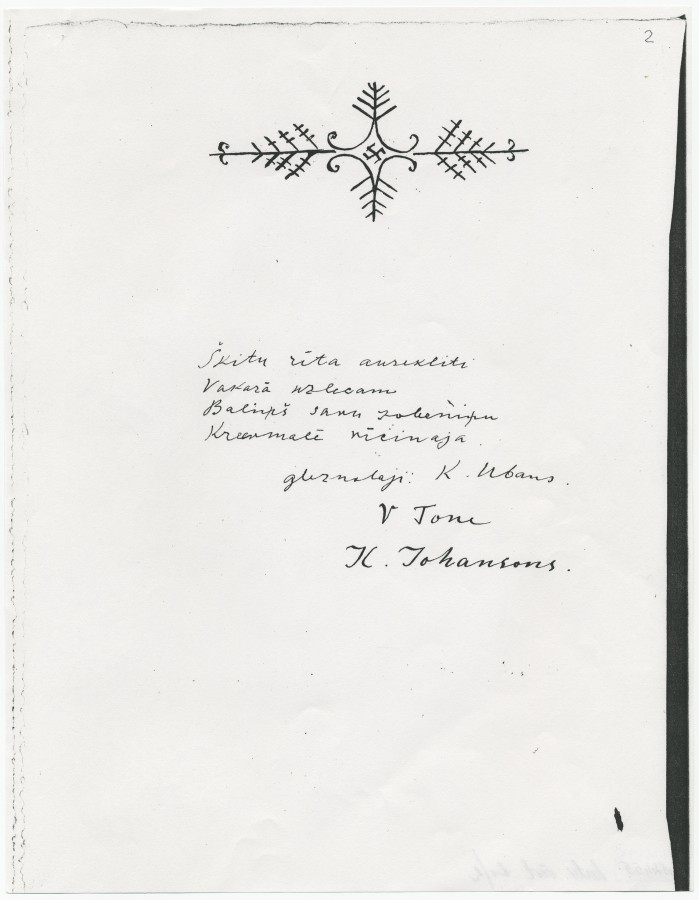 2
Šķitu rīta auseklīti
Vakarā uzlecam
Baliņš savu zobeniņu
vicinaja.
gleznotaji: K. Ubans.
V Tone
K. Johansons.